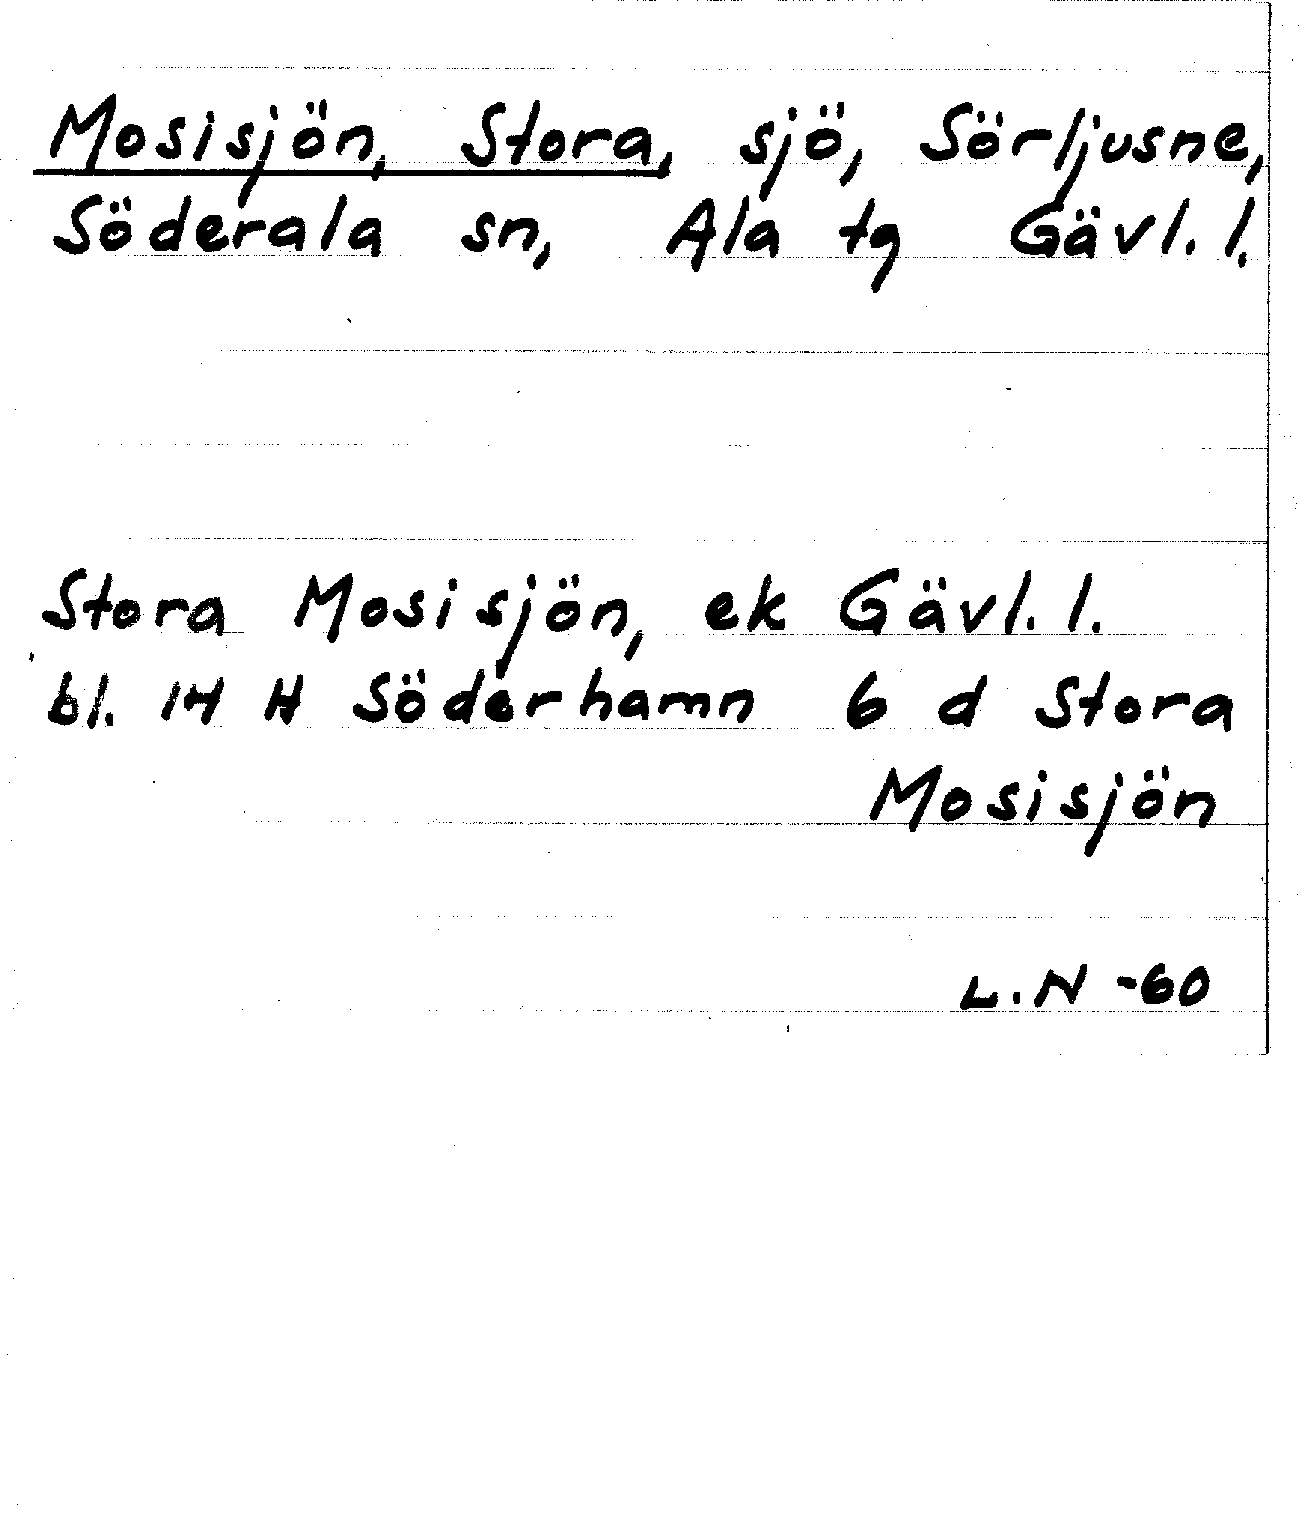 Mosisjön, Stora, sjö, Sörljusne,
Söderala sn, Ala tg Gävl. l.
Stora Mosisjön, ek Gävl. l.
bl. 14 H Söderhamn 6 d Stora
Mosisjön
L. N -60